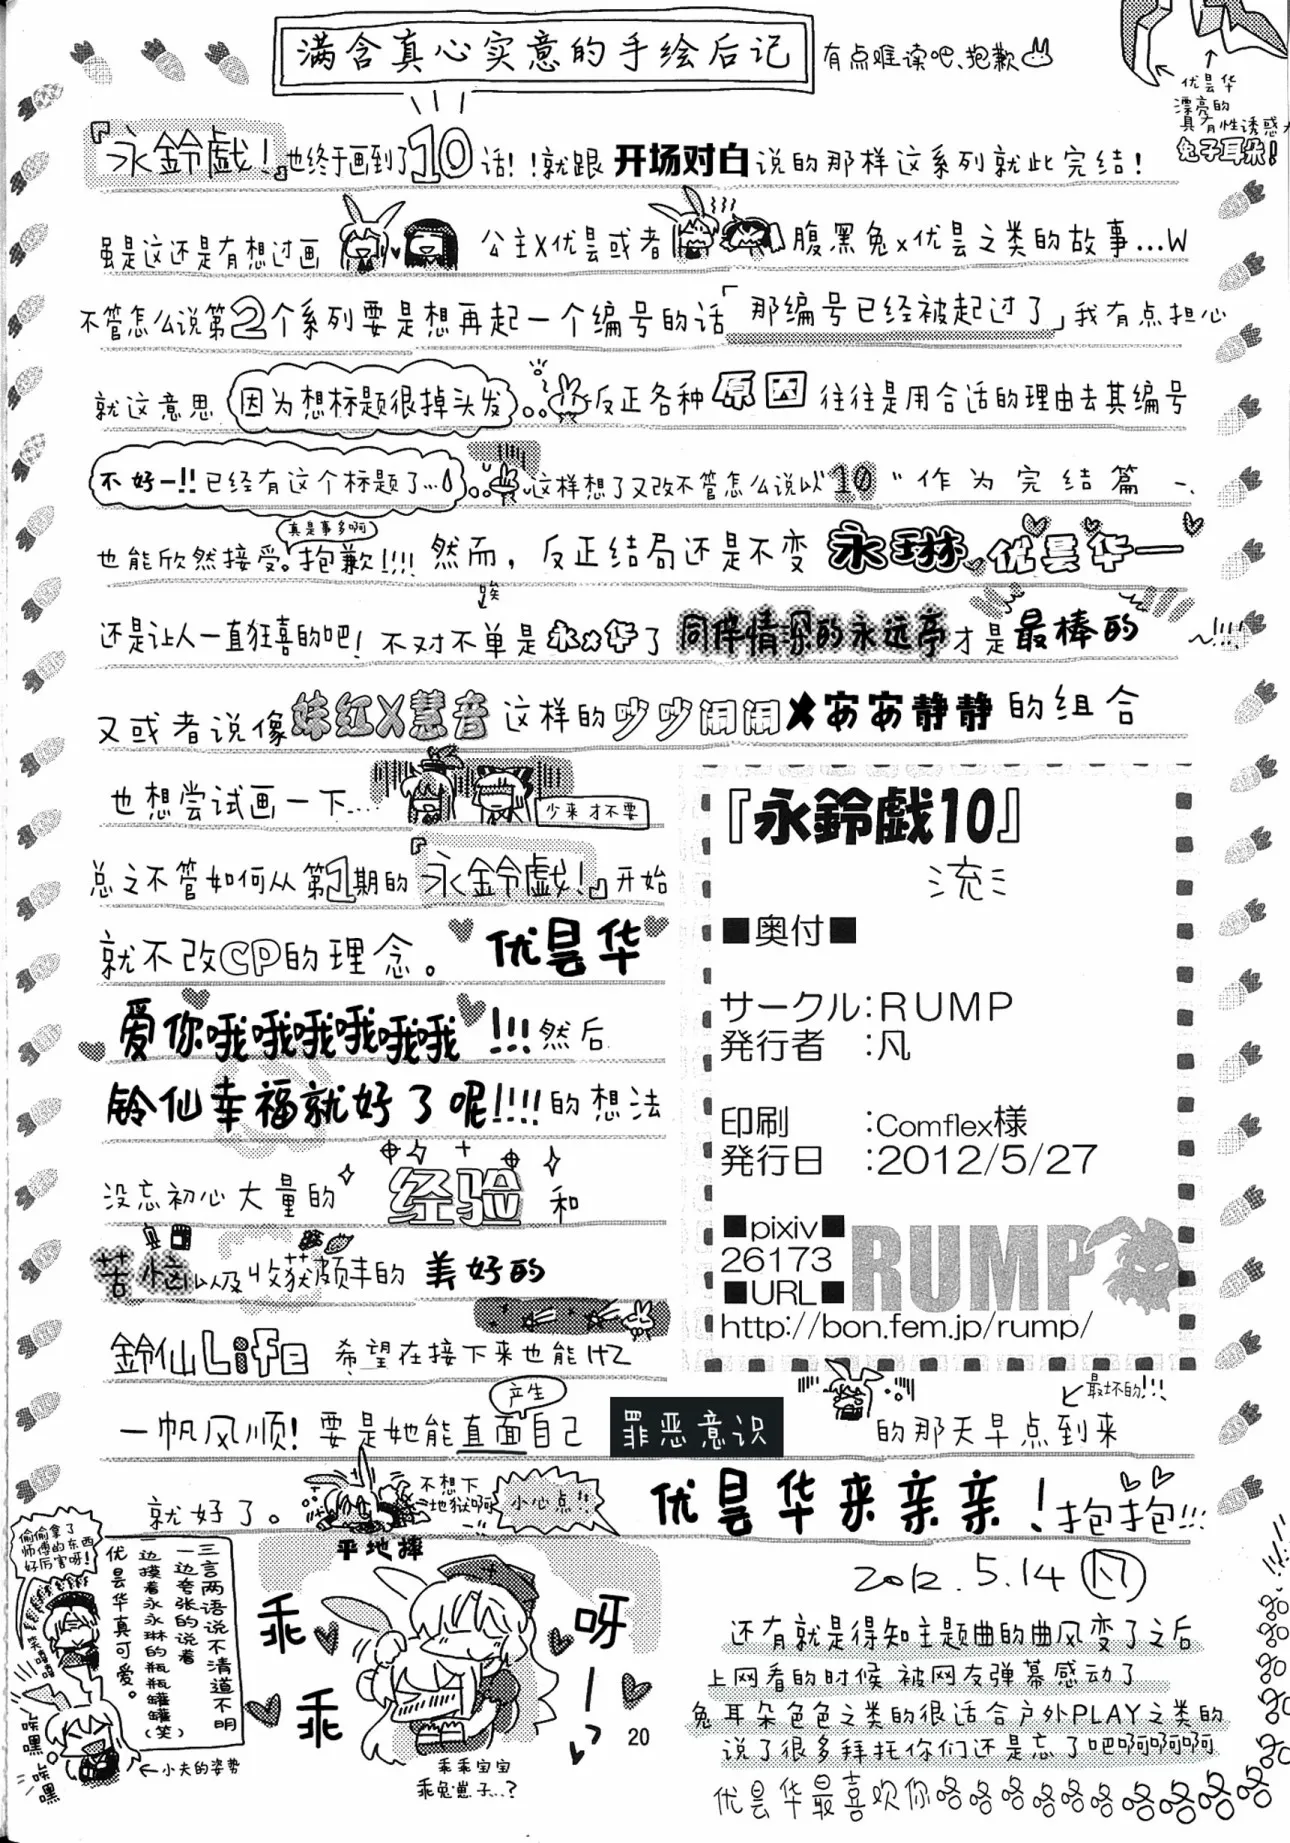 满含真心实意的手绘后记
有点难读吧、抱歉
优昙华
漂亮的
具有性诱惑力
兔子耳朵!
『永鈴戯!』也终于画到了10话!!就跟开场对白说的那样这系列就此完结!
虽是这还是有想过画 公主X优昙或者 腹黑兔x优昙之类的故事...W
不管怎么说第2个系列要是想再起一个编号的话「那编号已经被起过了」我有点担心
就这意思 因为想标题很掉头发。。 反正各种原因往往是用合适的理由去其编号
不好一!!已经有这个标题了... 。。 这样想了又改不管怎么说以"10"作为完结篇一、
真是事多啊
也能欣然接受。抱歉!!!! 然而，反正结局还是不变 永琳、优昙华一
诶
还是让人一直狂喜的吧! 不对不单是永x华了 同伴情深的永远亭才是最棒的~!!!!
又或者说像妹红X慧音这样的吵吵闹闹X安安静静的组合
也想尝试画一下... 少来才不要
总之不管如何从第1期的『永鈴戯!』开始
就不改CP的理念。优昙华
爱你哦哦哦哦哦哦!!!然后
铃仙幸福就好了呢!!!!的想法
没忘初心大量的经验和
苦恼以及收获颇丰的美好的
鈴仙Life 希望在接下来也能
一帆风顺! 要是她能直面自己 产生 罪恶意识 的那天早点到来
最坏的!!!
就好了。 不想下地狱啊 小心点!! 优昙华来亲亲! 抱抱!!!
平地摔
『永鈴戯10』
流
■奥付■
サークル:RUMP
発行者 :凡
印刷 :Comflex様
発行日 :2012/5/27
■pixiv■
26173
■URL■
RUMP
http://bon.fem.jp/rump/
2012.5.14 凡
偷偷拿了
师傅的东西
好厉害呀!
三言两语说不清道不明
一边夸张的说着
一边摸着永永琳的瓶瓶罐罐(笑)
优昙华真可爱。
诶嘿
诶嘿
←小夫的姿势
乖
乖
呀
一
乖乖宝宝
乖兔崽子...?
20
还有就是得知主题曲的曲风变了之后
上网看的时候 被网友弹幕感动了
兔耳朵色色之类的很适合户外PLAY之类的
说了很多拜托你们还是忘了吧啊啊啊啊
优昙华最喜欢你咯咯咯咯咯咯咯咯咯咯咯